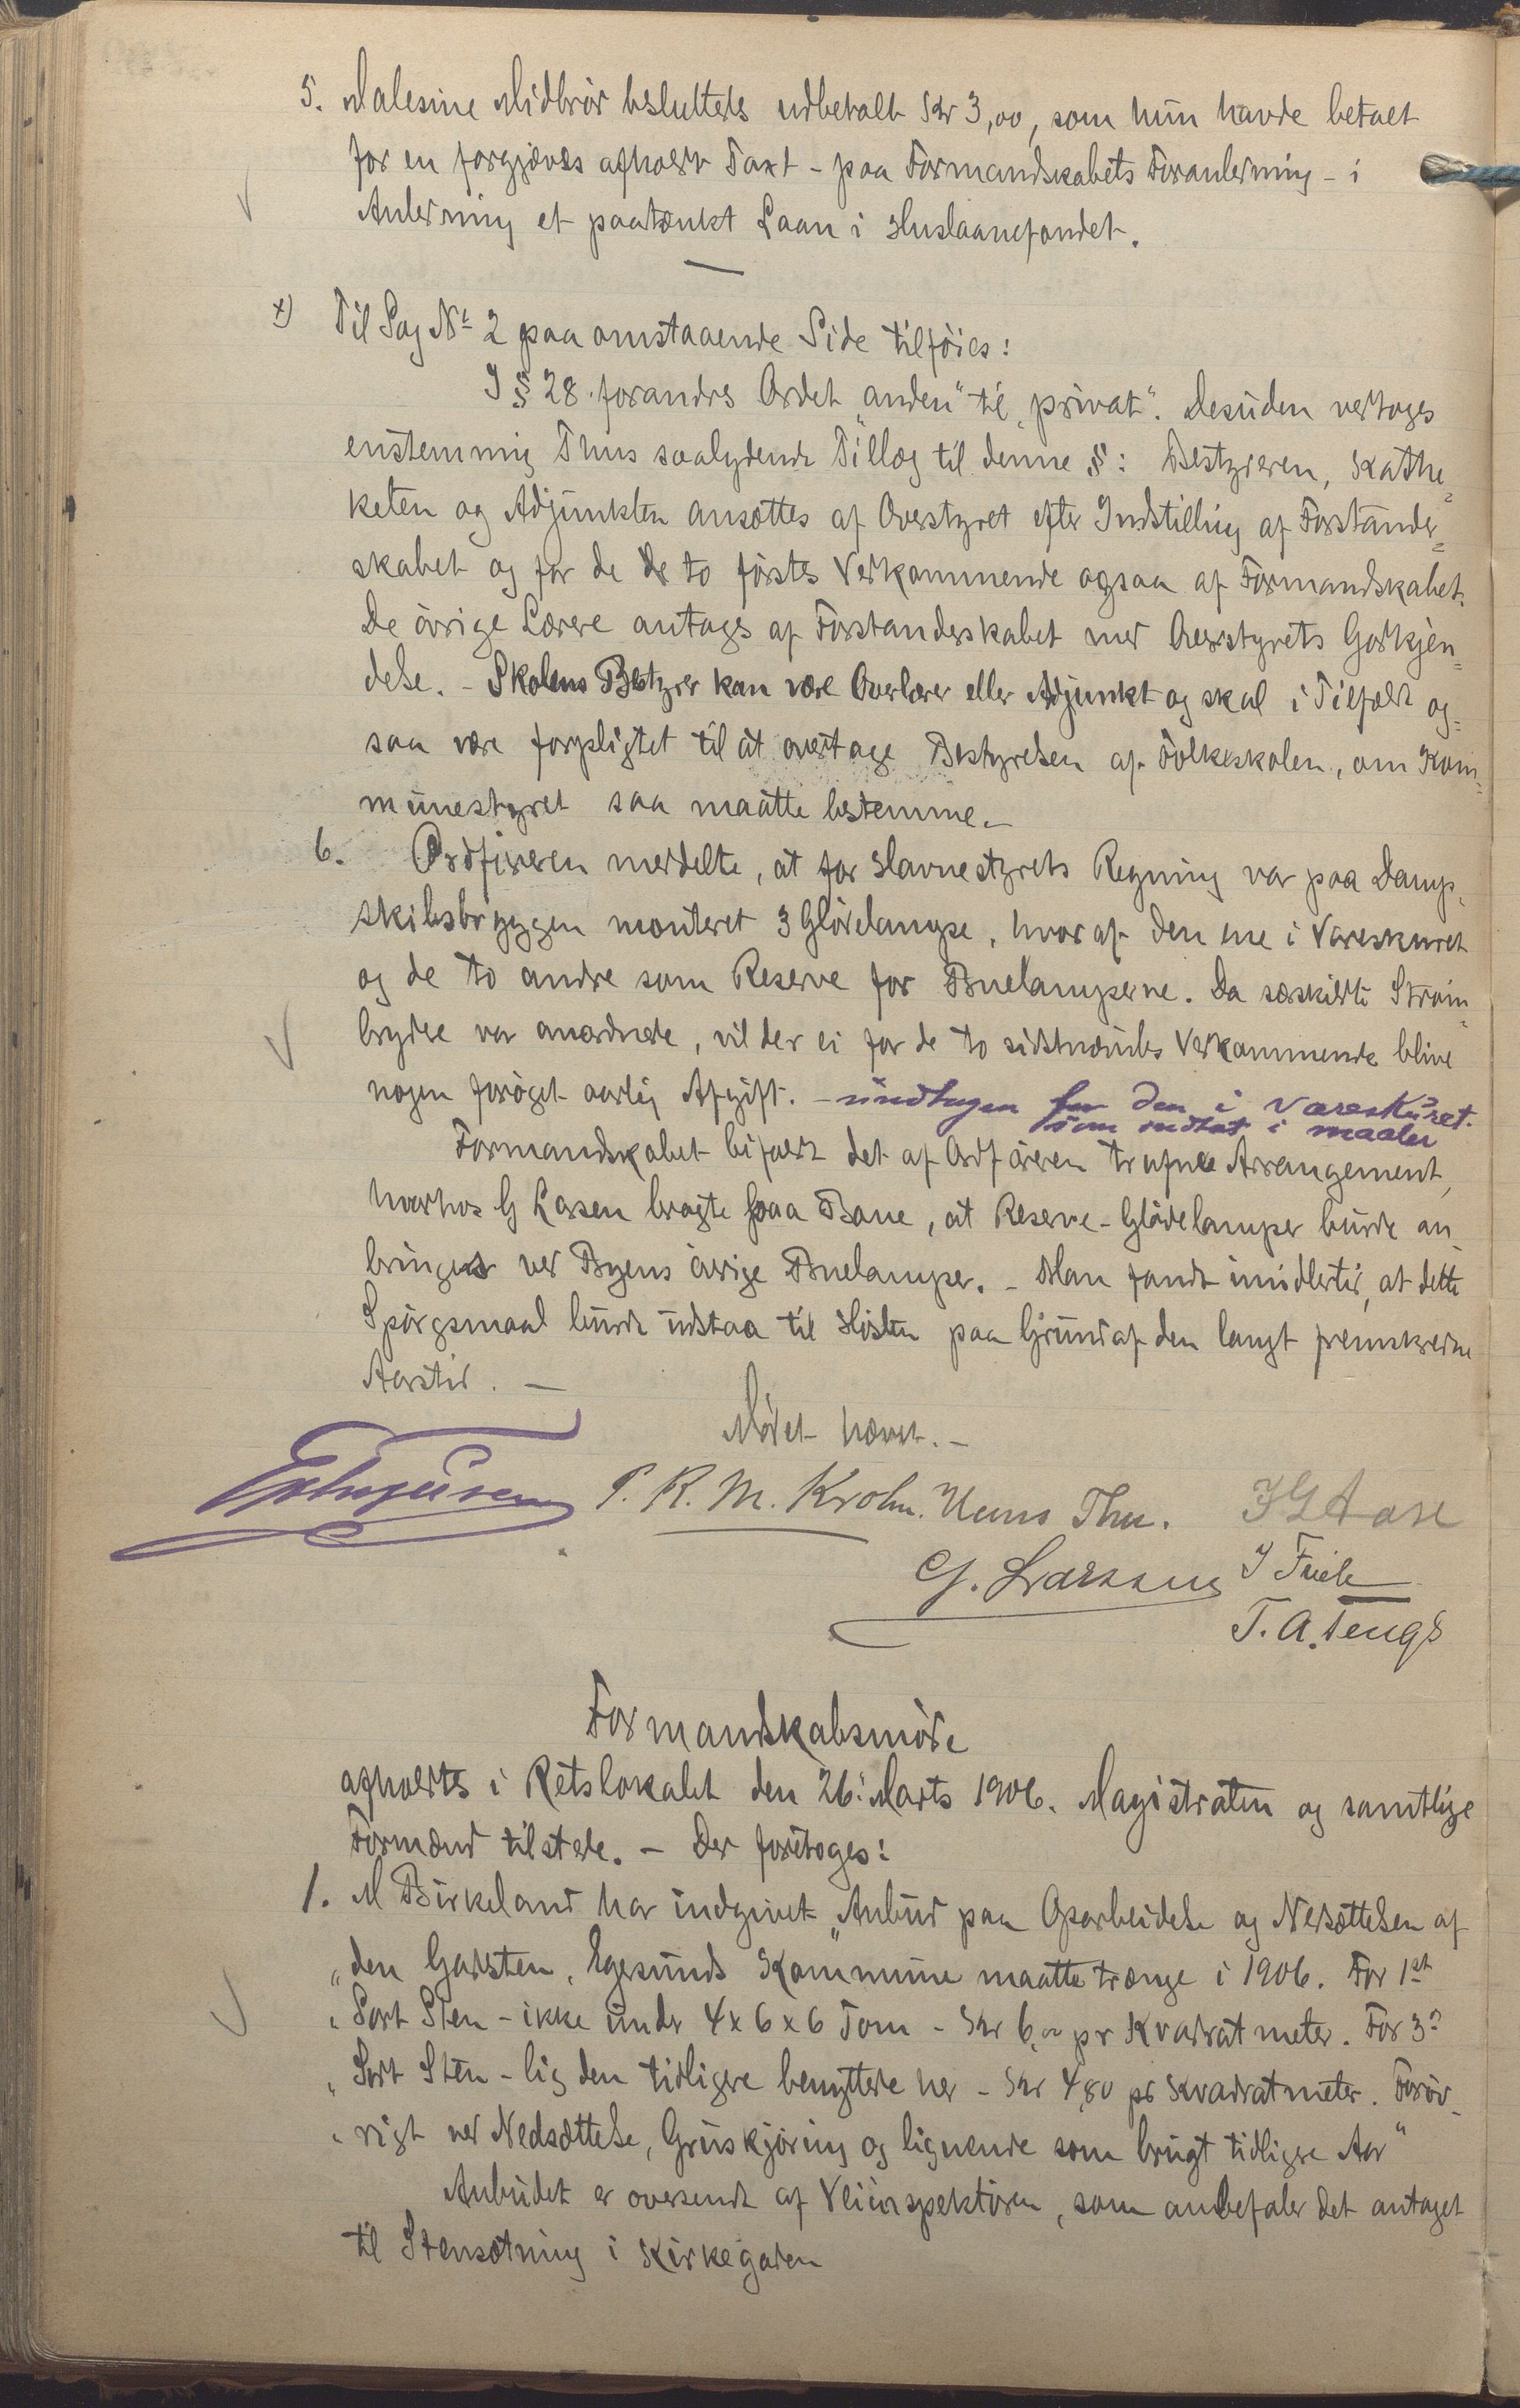 5. Malesine Midbrør besluttedes udbetalt Kr 3,00, som hun havde betalt
for en forgjæves afholdt Taxt - paa Formandskabets Foranledning - i
Anledning et paatænkt Laan i Huslaanefondet.
x) Til Sag No 2 paa omstaaende Side tilføies:
I § 28 forandres Ordet "anden" til "privat". Desuden vedtoges
enstemmig Thus saalydende Tillæg til denne §: Bestyreren, Kathe=
keten og Adjunkten ansættes af Overstyret efter Indstilling af Forstander=
skabet og for de to førstes Vedkommende ogsaa af Formandskabet.
De øvrige Lærere antages af Forstanderskabet med Overstyrets Godkjen=
delse. - Skolens Bestyrer kan være Overlærer eller Adjunkt og skal i Tilfælde og=
saa være forpligtet til at overtage Bestyrelsen af Folkeskolen, om Kom=
munestyret saa maatte bestemme. -
6. Ordføreren meddelte, at for Havnestyrets Regning var paa Damp-
skibsbryggen monteret 3 Glødelampe, hvoraf den ene i Vareskuret
og de to andre som Reserve for Buelamperne. Da særskilte Strøm=
brydere var anordnede, vil der ei for de to sidstnævntes Vedkommende blive
nogen forøget aarlig Afgift. - undtagen for den i Vareskuret.
som indtat i maaler
Formandskabet bifaldt det af Ordføreren trufne Arrangement,
hvorhos G Larsen bragte paa Bane, at Reserve-Glødelamper burde an-
bringes ved Byens øvrige Buelamper. - Man fandt imidlertid, at dette
Spørgsmaal burde udstaa til Høsten paa Grund af den langt fremskredne
Aarstid. -
Mødet hævet. -
P. R. M. Krohn. Hans Thu. I G Aase
G. Larsen I Friele
T. A. Tengs
Formandskabsmøde
afholdtes i Retslokalet den 26. Marts 1906. Magistraten og samtlige
Formænd tilstede. - Der foretoges:
1. M Birkeland har indgivet "Anbud paa Oparbeidelse og Nedsættelsen af
"den Gadsten, Egersunds Kommune maatte trænge i 1906. For 1st
"Sort Sten - ikke under 4 x 6 x 6 Tom - Kr 6,00 pr Kvadratmeter. For 3?
"Sort Sten - lig den tidligere benyttede her - Kr 4,80 pr Kvadratmeter. Forøv-
"rigt ved Nedsættelse, Gruskjøring og lignende som brugt tidligere Aar"
Anbudet er oversendt af Veiinspektøren, som anbefaler det antaget
til Stensætning i Kirkegaden